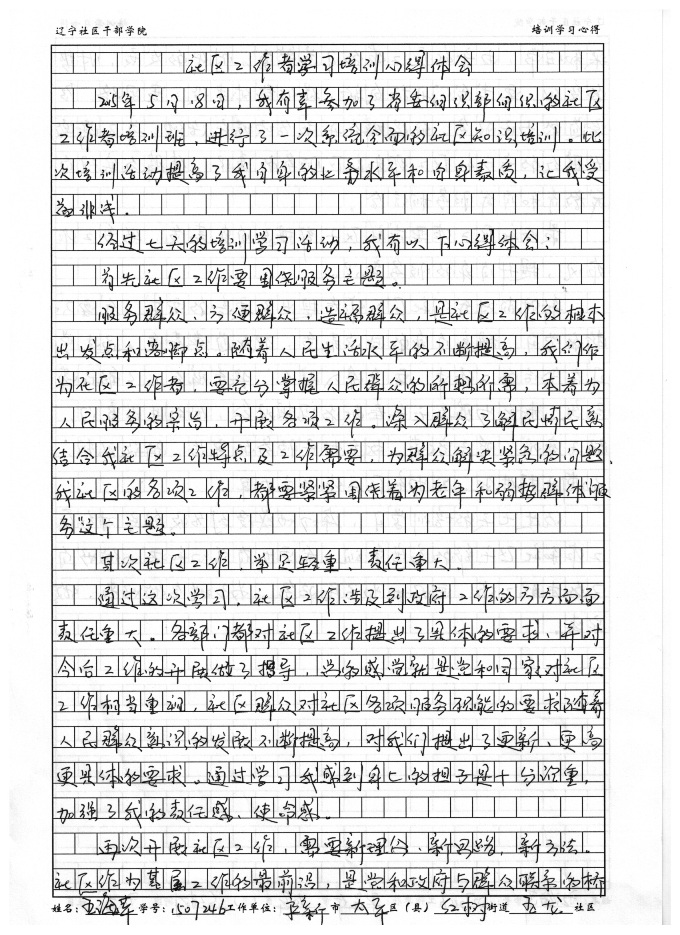 辽宁社区干部学院 培训学习心得
社区工作者学习培训心得体会
2015年5月18日，我有幸参加了省委组织部组织的社区
工作者培训班，进行了一次系统全面的社区知识培训。此
次培训活动提高了我自身的业务水平和自身素质，让我受
益非浅。
经过七天的培训学习活动，我有以下心得体会：
首先社区工作要围绕服务主题。
服务群众、方便群众、造福群众，是社区工作的根本
出发点和落脚点。随着人民生活水平的不断提高，我们作
为社区工作者，要充分掌握人民群众的所想所需，本着为
人民服务的宗旨，开展各项工作。深入群众了解民情民意
结合我社区工作特点及工作需要，为群众解决紧急的问题，
我社区的各项工作，都要紧紧围绕着为老年和弱势群体服
务这个主题。
其次社区工作，举足轻重、责任重大。
通过这次学习，社区工作涉及到政府工作的方方面面
责任重大。各部门都对社区工作提出了具体的要求，并对
今后工作的开展做了指导，总的感觉就是党和国家对社区
工作相当重视，社区群众对社区各项服务职能的要求随着
人民群众意识的发展不断提高，对我们提出了更新、更高
更具体的要求。通过学习我感到身上的担子是十分沉重，
加强了我的责任感、使命感。
再次开展社区工作，需要新理念、新思路，新方法。
社区作为基层工作的最前沿，是党和政府与群众联系的桥
姓名： 学号：1507246工作单位： 市 太平区（县） 红树街道 五龙 社区